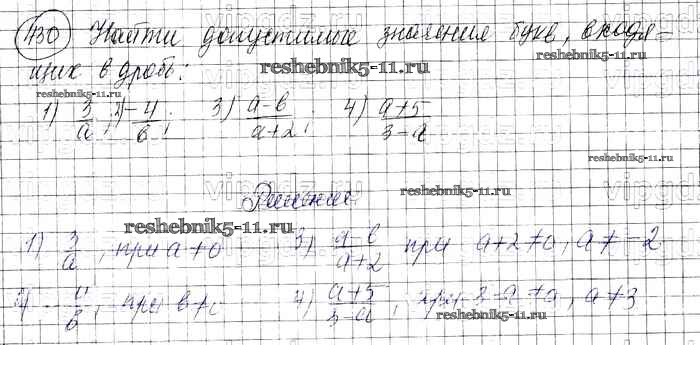 430 Найти допустимые значения букв, входя-
щих в дробь:
reshebnik5-11.ru
reshebnik5-11.ru
1) 3/a; 2) -4/b; 3) (a-b)/(a+2); 4) (a+5)/(3-a)
reshebnik5-11.ru
Решение
reshebnik5-11.ru
reshebnik5-11.ru
1) 3/a, при a≠0 3) (a-b)/(a+2) при a+2≠0, a≠-2
2) -4/b, при b≠0 4) (a+5)/(3-a), при 3-a≠0, a≠3
reshebnik5-11.ru